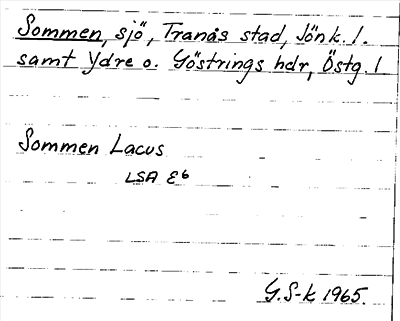 Sommen, sjö, Tranås stad, Jönk. l.
samt Ydre o. Göstrings hdr, Östg. l
Sommen Lacus
LSA E6
G. S-k 1965.